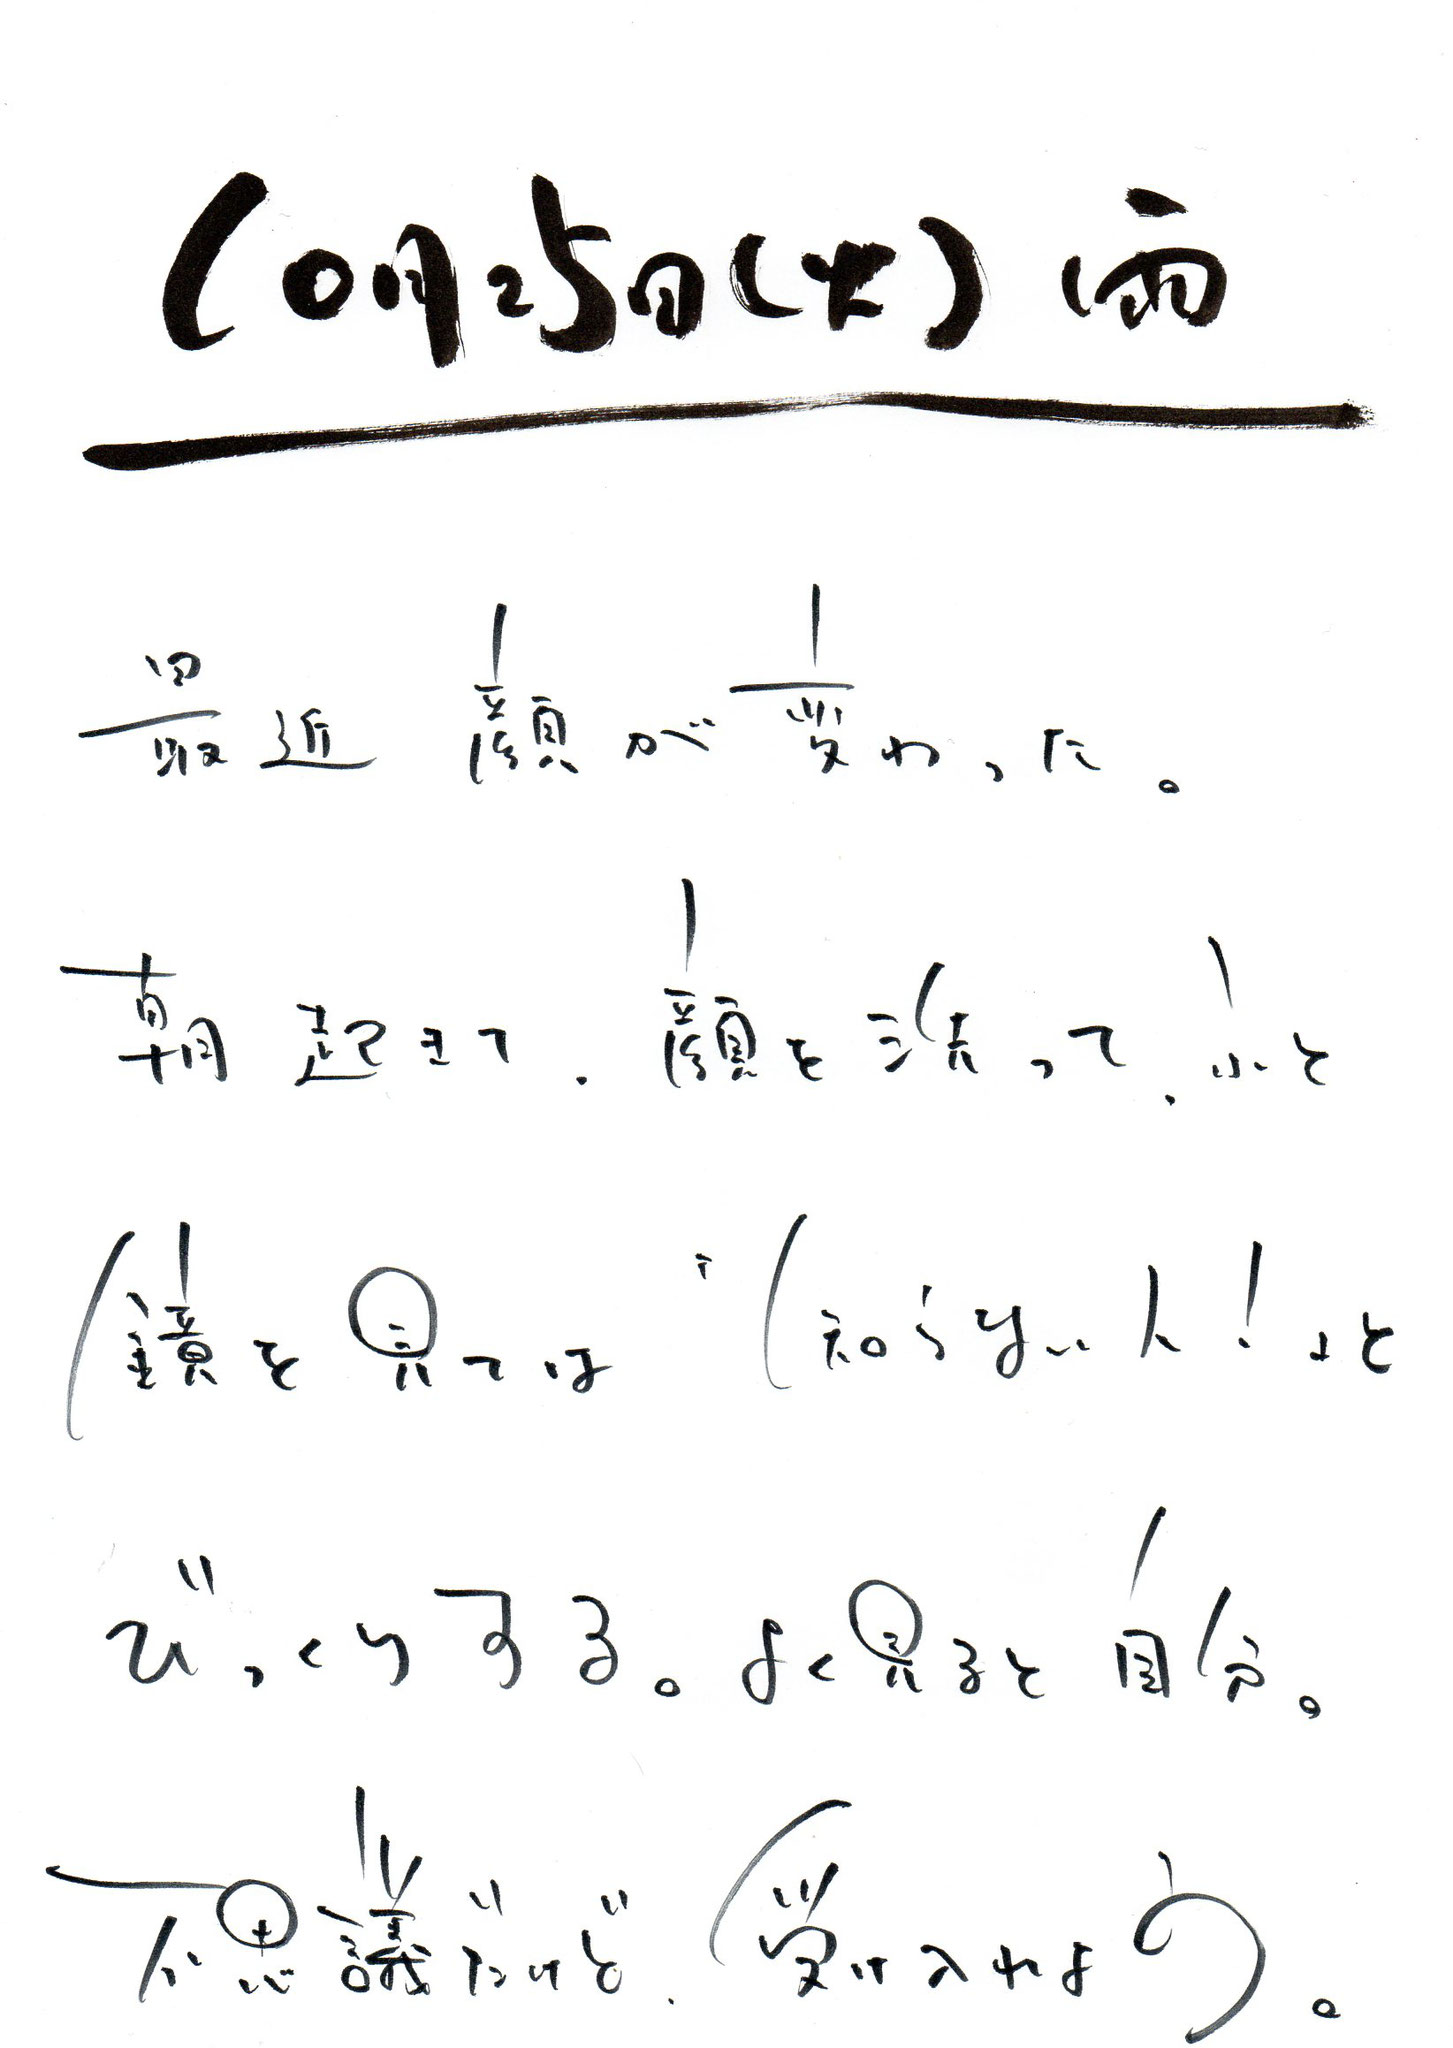 10月25日(火)雨
最近 顔が変わった。
朝起きて、顔を洗って、ふと
鏡を見ては「知らない人!」と
びっくりする。よく見ると自分。
不思議だけど、受け入れよう。